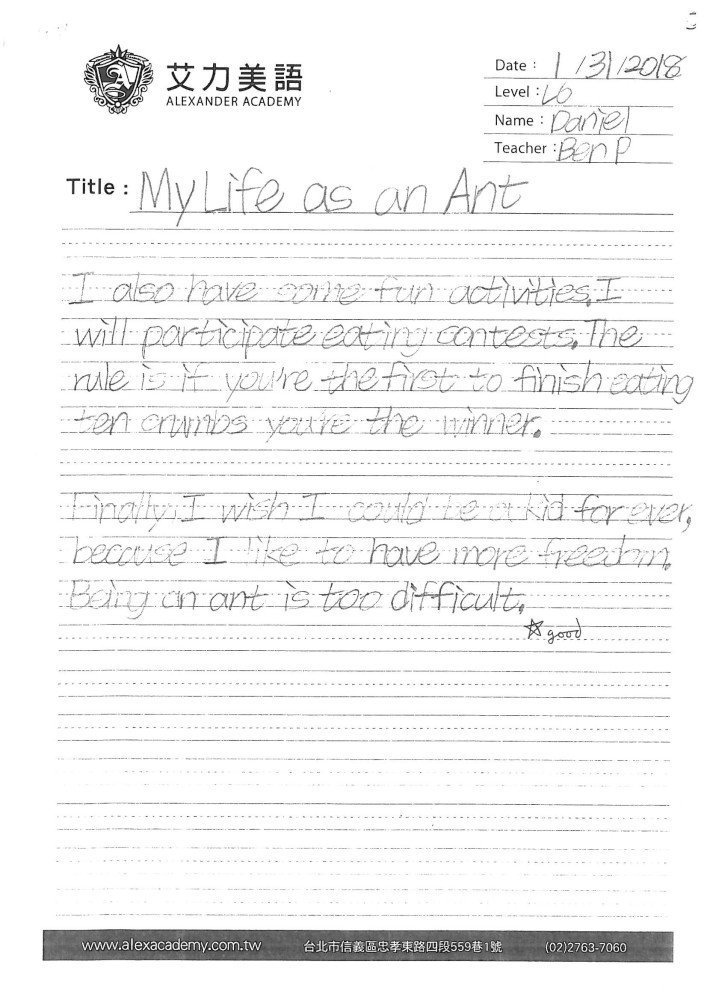 艾力美語
ALEXANDER ACADEMY
Date : 1/31/2018
Level : L6
Name : Daniel
Teacher : Ben P
Title : My Life as an Ant
I also have some fun activities. I
will participate eating contests. The
rule is if you're the first to finish eating
ten crumbs you're the winner.
Finally I wish I could be a kid for ever,
because I like to have more freedom.
Being an ant is too difficult.
☆ good
www.alexacademy.com.tw 台北市信義區忠孝東路四段559巷1號 (02)2763-7060